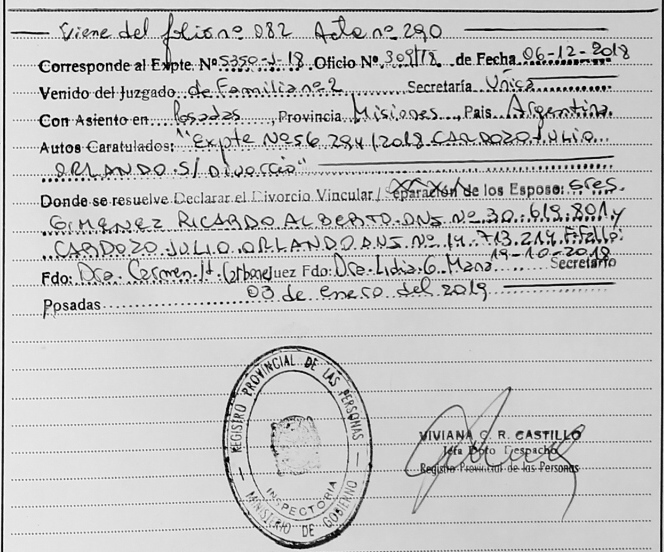 Viene del folio nº 082 Acta nº 290
Corresponde al Expte Nº 5350-J-18 Oficio Nº 309/18 de Fecha 06-12-2018
Venido del Juzgado de Familia nº 2 Secretaría Única
Con Asiento en Posadas, Provincia Misiones, Pais Argentina
Autos Caratulados: "Expte Nº 56.284/2018 CARDOZO JULIO
ORLANDO S/ Divorcio"
Donde se resuelve Declarar el Divorcio Vincular / Separación de los Esposos: Sres.
GIMENEZ RICARDO ALBERTO. DNI. Nº 30.619.801 y
CARDOZO JULIO ORLANDO. DNI. Nº 14.713.214 F.Fallo:
19-10-2018
Fdo: Dra. Carmen H. Carbone Juez Fdo: Dra. Lidia G. Secretario
Posadas 03 de enero del 2019
REGISTRO PROVINCIAL DE LAS PERSONAS
INSPECTORIA
MINISTERIO DE GOBIERNO
VIVIANA C. R. CASTILLO
Jefa Dpto Despacho
Registro Provincial de las Personas